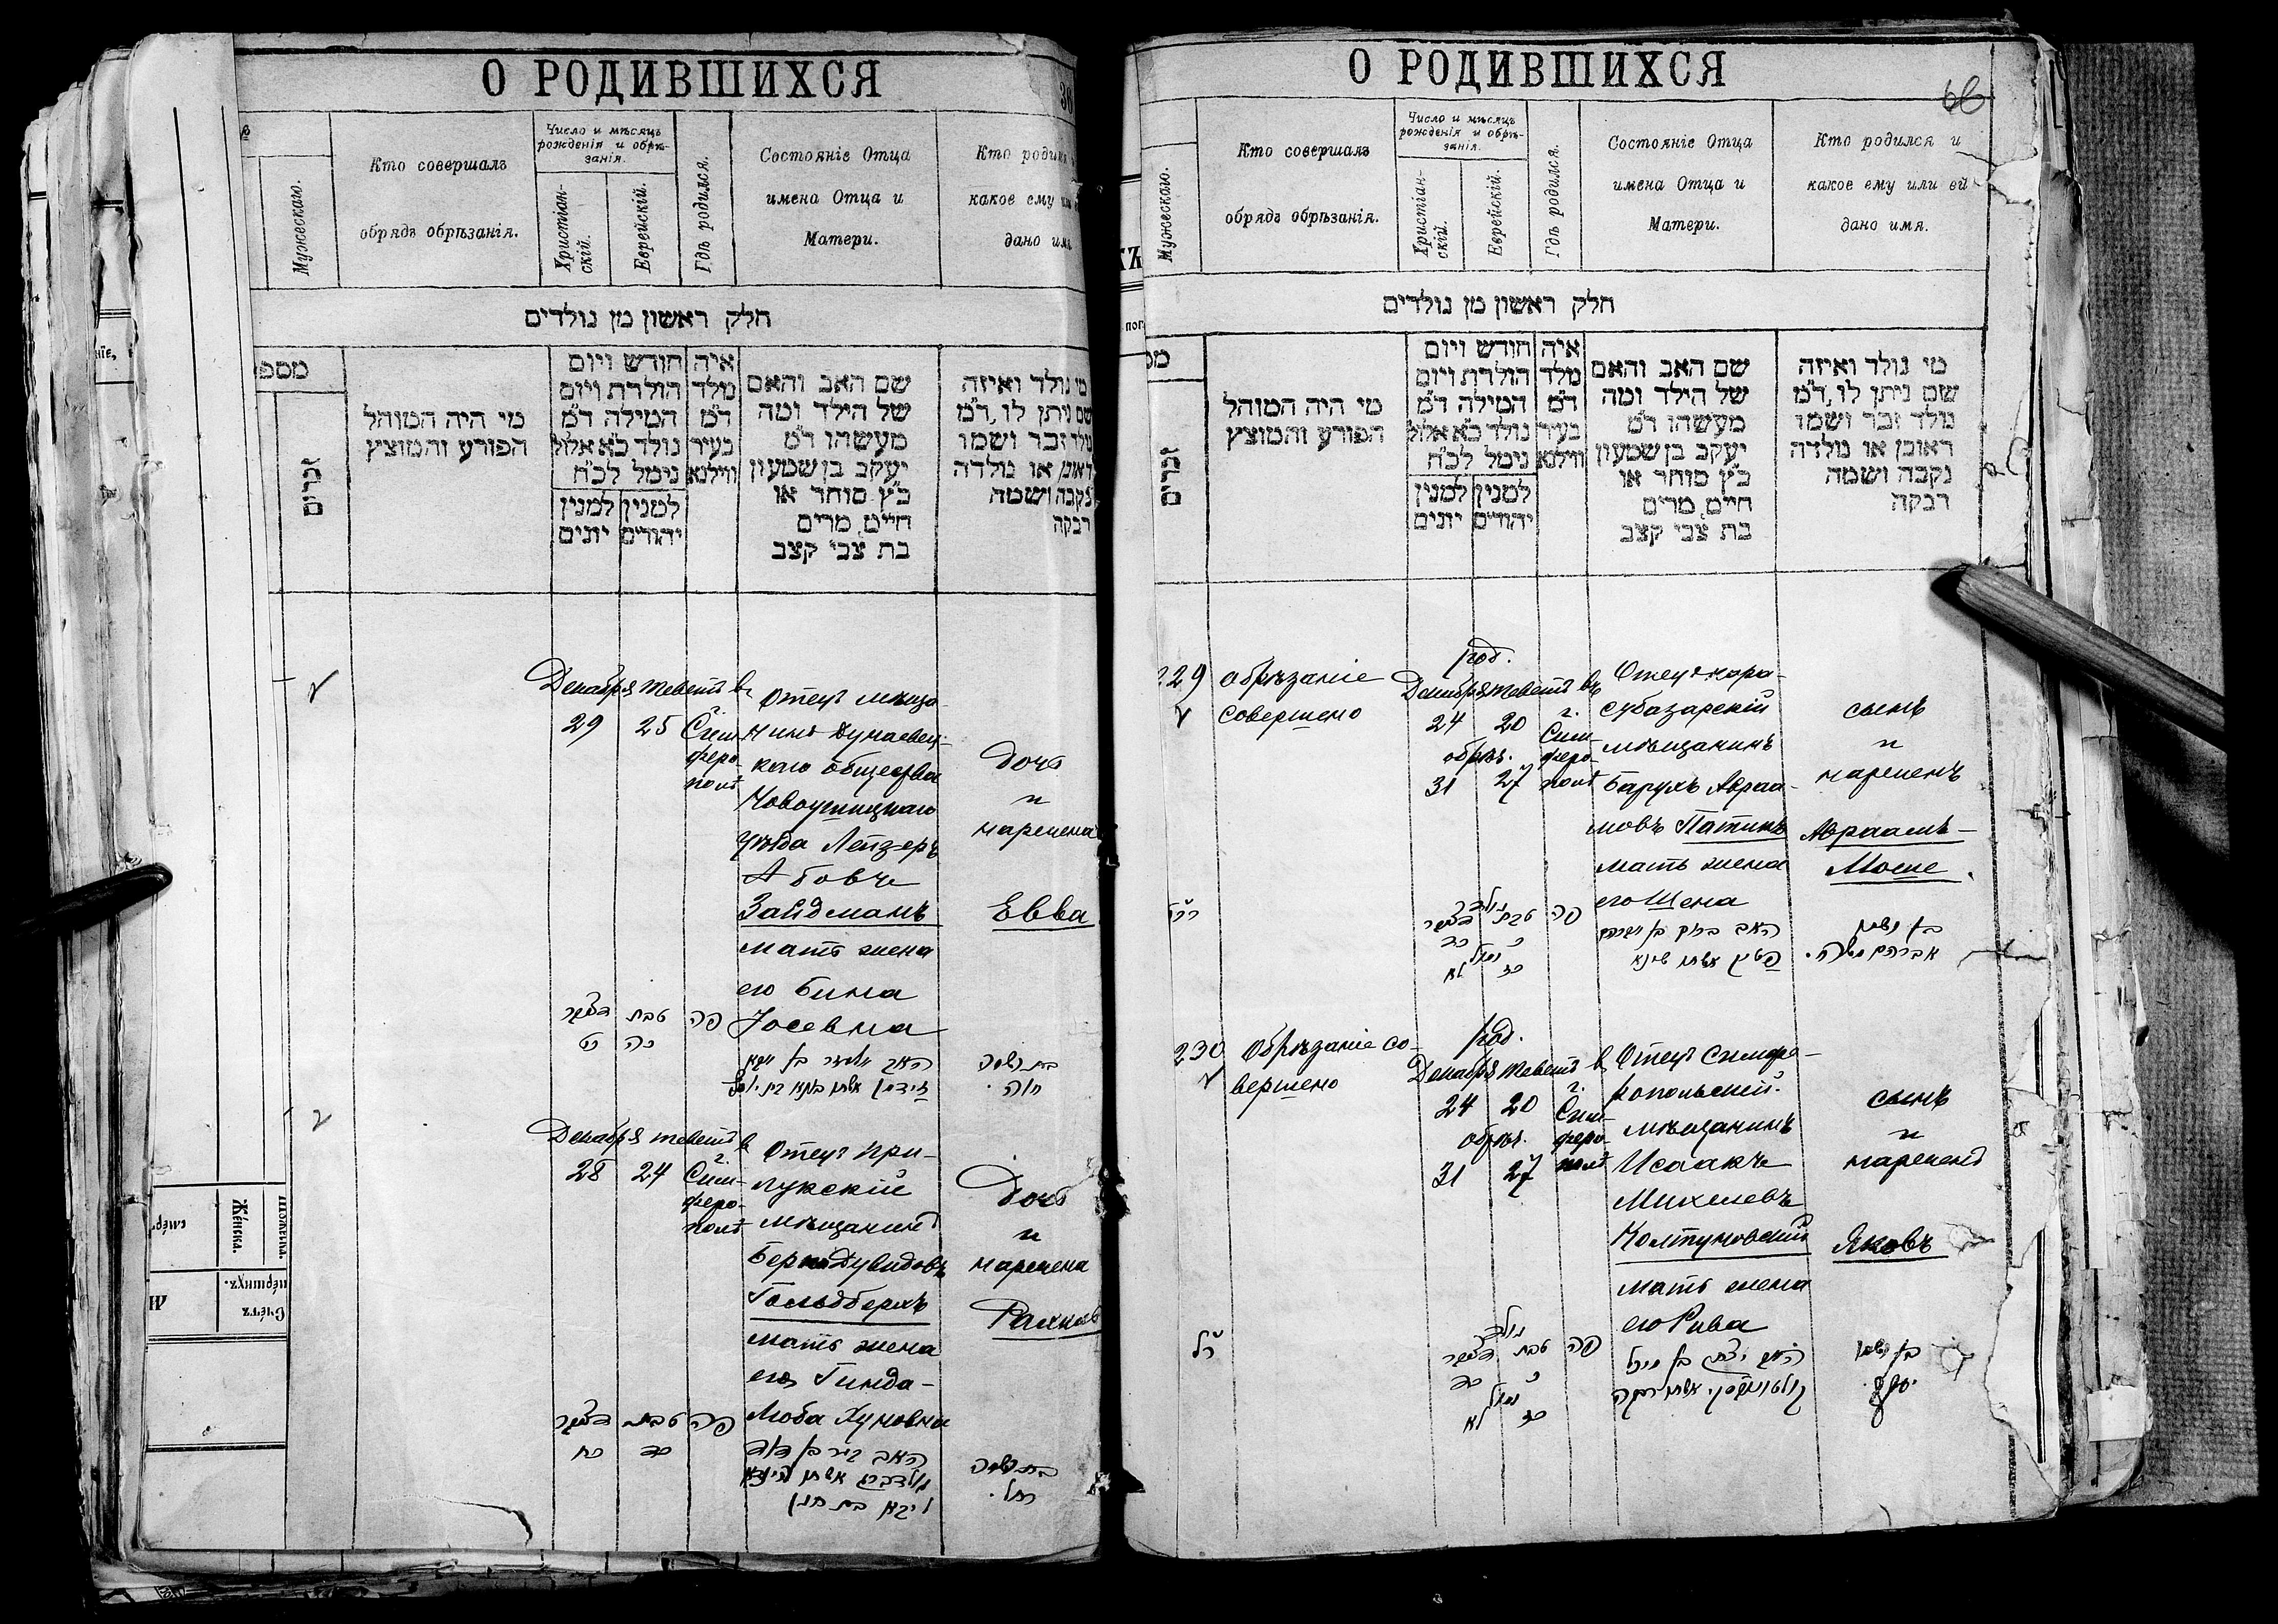 О РОДИВШИХСЯ
Мужескаго.
Кто совершалъ
обрядъ обрѣзанія.
Число и мѣсяцъ
рожденія и обрѣ-
занія.
Христіан-
скій.
Еврейскій.
Гдѣ родился.
Состояніе Отца
имена Отца и
Матери.
Кто родился
какое ему
дано имя
חלק ראשון מן נולדים
מספ
זכרים
מי היה המוהל
הפורע והמוצץ
חודש ויום
הולדת ויום
המילה ד"מ
נולד כ"א אלול
נימל לכ"ח
למנין למנין
יהודים יונים
איה
מלד
ד"מ
בעיר
ווילנא
שם האב והאם
של הילד ומה
מעשהו ד"מ
יעקב בן שמעון
כ"ץ סוחר או
חיים, מרים
בת צבי קצב
מי נולד ואיזה
שם ניתן לו, ד"מ
נולד זכר ושמו
ראובן או נולדה
נקבה ושמה
רבקה
Декабря
29
теветъ
25
въ
г.
Сим
феро-
полѣ
Отецъ мѣща-
нинъ Дунаевец-
каго общества
Новоушицкаго
уѣзда Лейзеръ
Абовъ
Зайдманъ
мать жена
его Бина
Іосевна
дочь
и
наречена
Евва
דעצבר
כט
טבת
כה
פה
בת ושמה
חוה.
Декабря
28
теветъ
24
въ
г.
Сим-
феро-
полѣ
Отецъ при-
лукскій
мѣщанинъ
Берко Дувидовъ
Гольдбергъ
мать жена
его Гинда-
Люба Хуновна
дочь
и
наречена
Рахиль
דעצבר
כח
טבת
כד
פה
האב בער בן דוד
גאלדבערג אשתו הינדא
ליבא בת חנן
בת ושמה
רחל.
О РОДИВШИХСЯ
66
Мужескаго.
Кто совершалъ
обрядъ обрѣзанія.
Число и мѣсяцъ
рожденія и обрѣ-
занія.
Христіан-
скій.
Еврейскій.
Гдѣ родился.
Состояніе Отца
имена Отца и
Матери.
Кто родился и
какое ему или ей
дано имя.
חלק ראשון מן נולדים
זכרים
מי היה המוהל
הפורע והמוצץ
חודש ויום
הולדת ויום
המילה ד"מ
נולד כ"א אלול
נימל לכ"ח
למנין למנין
יהודים יונים
איה
מלד
ד"מ
בעיר
ווילנא
שם האב והאם
של הילד ומה
מעשהו ד"מ
יעקב בן שמעון
כ"ץ סוחר או
חיים, מרים
בת צבי קצב
מי נולד ואיזה
שם ניתן לו, ד"מ
נולד זכר ושמו
ראובן או נולדה
נקבה ושמה
רבקה
229
обрѣзаніе
совершено
род.
Декабря теветъ
24 20
обрѣз.
31 27
въ
г.
Сим-
феро-
полѣ
Отецъ кара-
субазарскій
мѣщанинъ
Барухъ Авраа-
мовъ Патикъ
мать жена
его Шена
сынъ
и
нареченъ
Авраамъ-
Моше
נולד
דעצבר טבת
כד כ
נימול
לא כז
פה
האב ברוך בן אברהם
פטיק אשתו שינא
בן ושמו
אברהם משה.
230
Обрѣзаніе со-
вершено
род.
Декабря теветъ
24 20
обрѣз.
31 27
въ
г.
Сим-
феро-
полѣ
Отецъ Симфе-
ропольскій
мѣщанинъ
Исаакъ
Михелевъ
Колтуновскій
мать жена
его Рива
сынъ
и
нареченъ
Яковъ
רל
נולד
דעצבר טבת
כד כ
נימול
לא כז
פה
האב יצחק בן מיכל
קולטונובסקי אשתו רבקה
בן ושמו
יעקב.